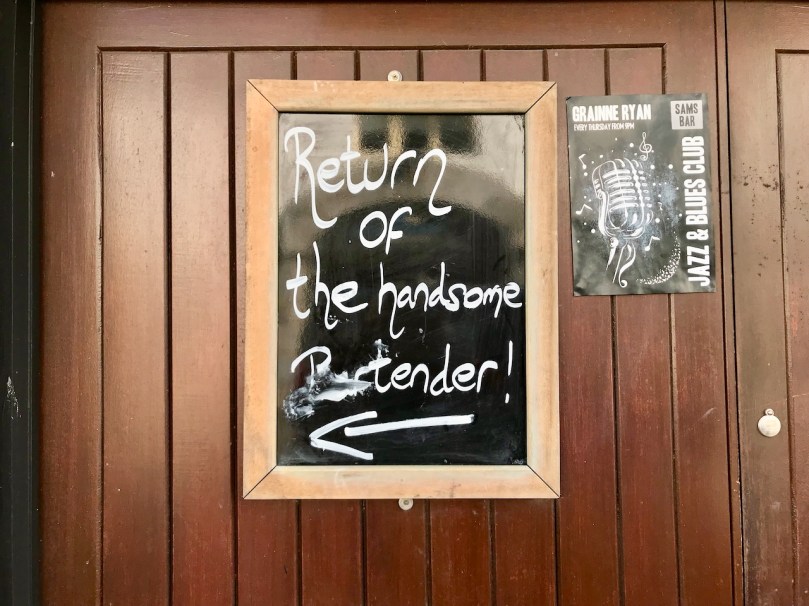 Return
of
the handsome
Bartender!
GRAINNE RYAN
EVERY THURSDAY FROM 9PM
SAMS
BAR
JAZZ & BLUES CLUB